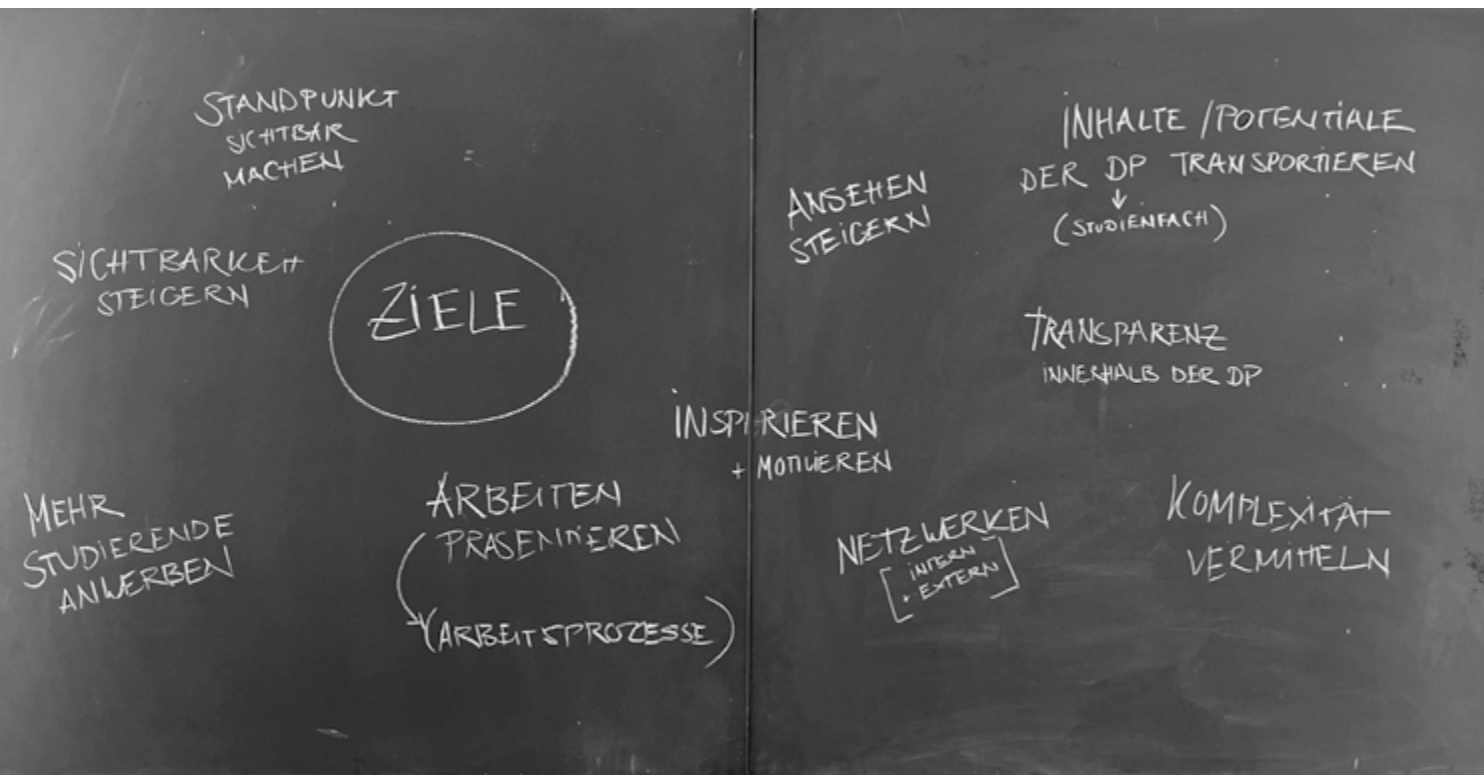 STANDPUNKT
SICHTBAR
MACHEN
SICHTBARKEIT
STEIGERN
ZIELE
MEHR
STUDIERENDE
ANWERBEN
ARBEITEN
PRÄSENTIEREN
(ARBEITSPROZESSE)
INSPIRIEREN
+ MOTIVIEREN
ANSEHEN
STEIGERN
INHALTE / POTENTIALE
DER DP TRANSPORTIEREN
↓
(STUDIENFACH)
TRANSPARENZ
INNERHALB DER DP
NETZWERKEN
[INTERN
+ EXTERN]
KOMPLEXITÄT
VERMITTELN